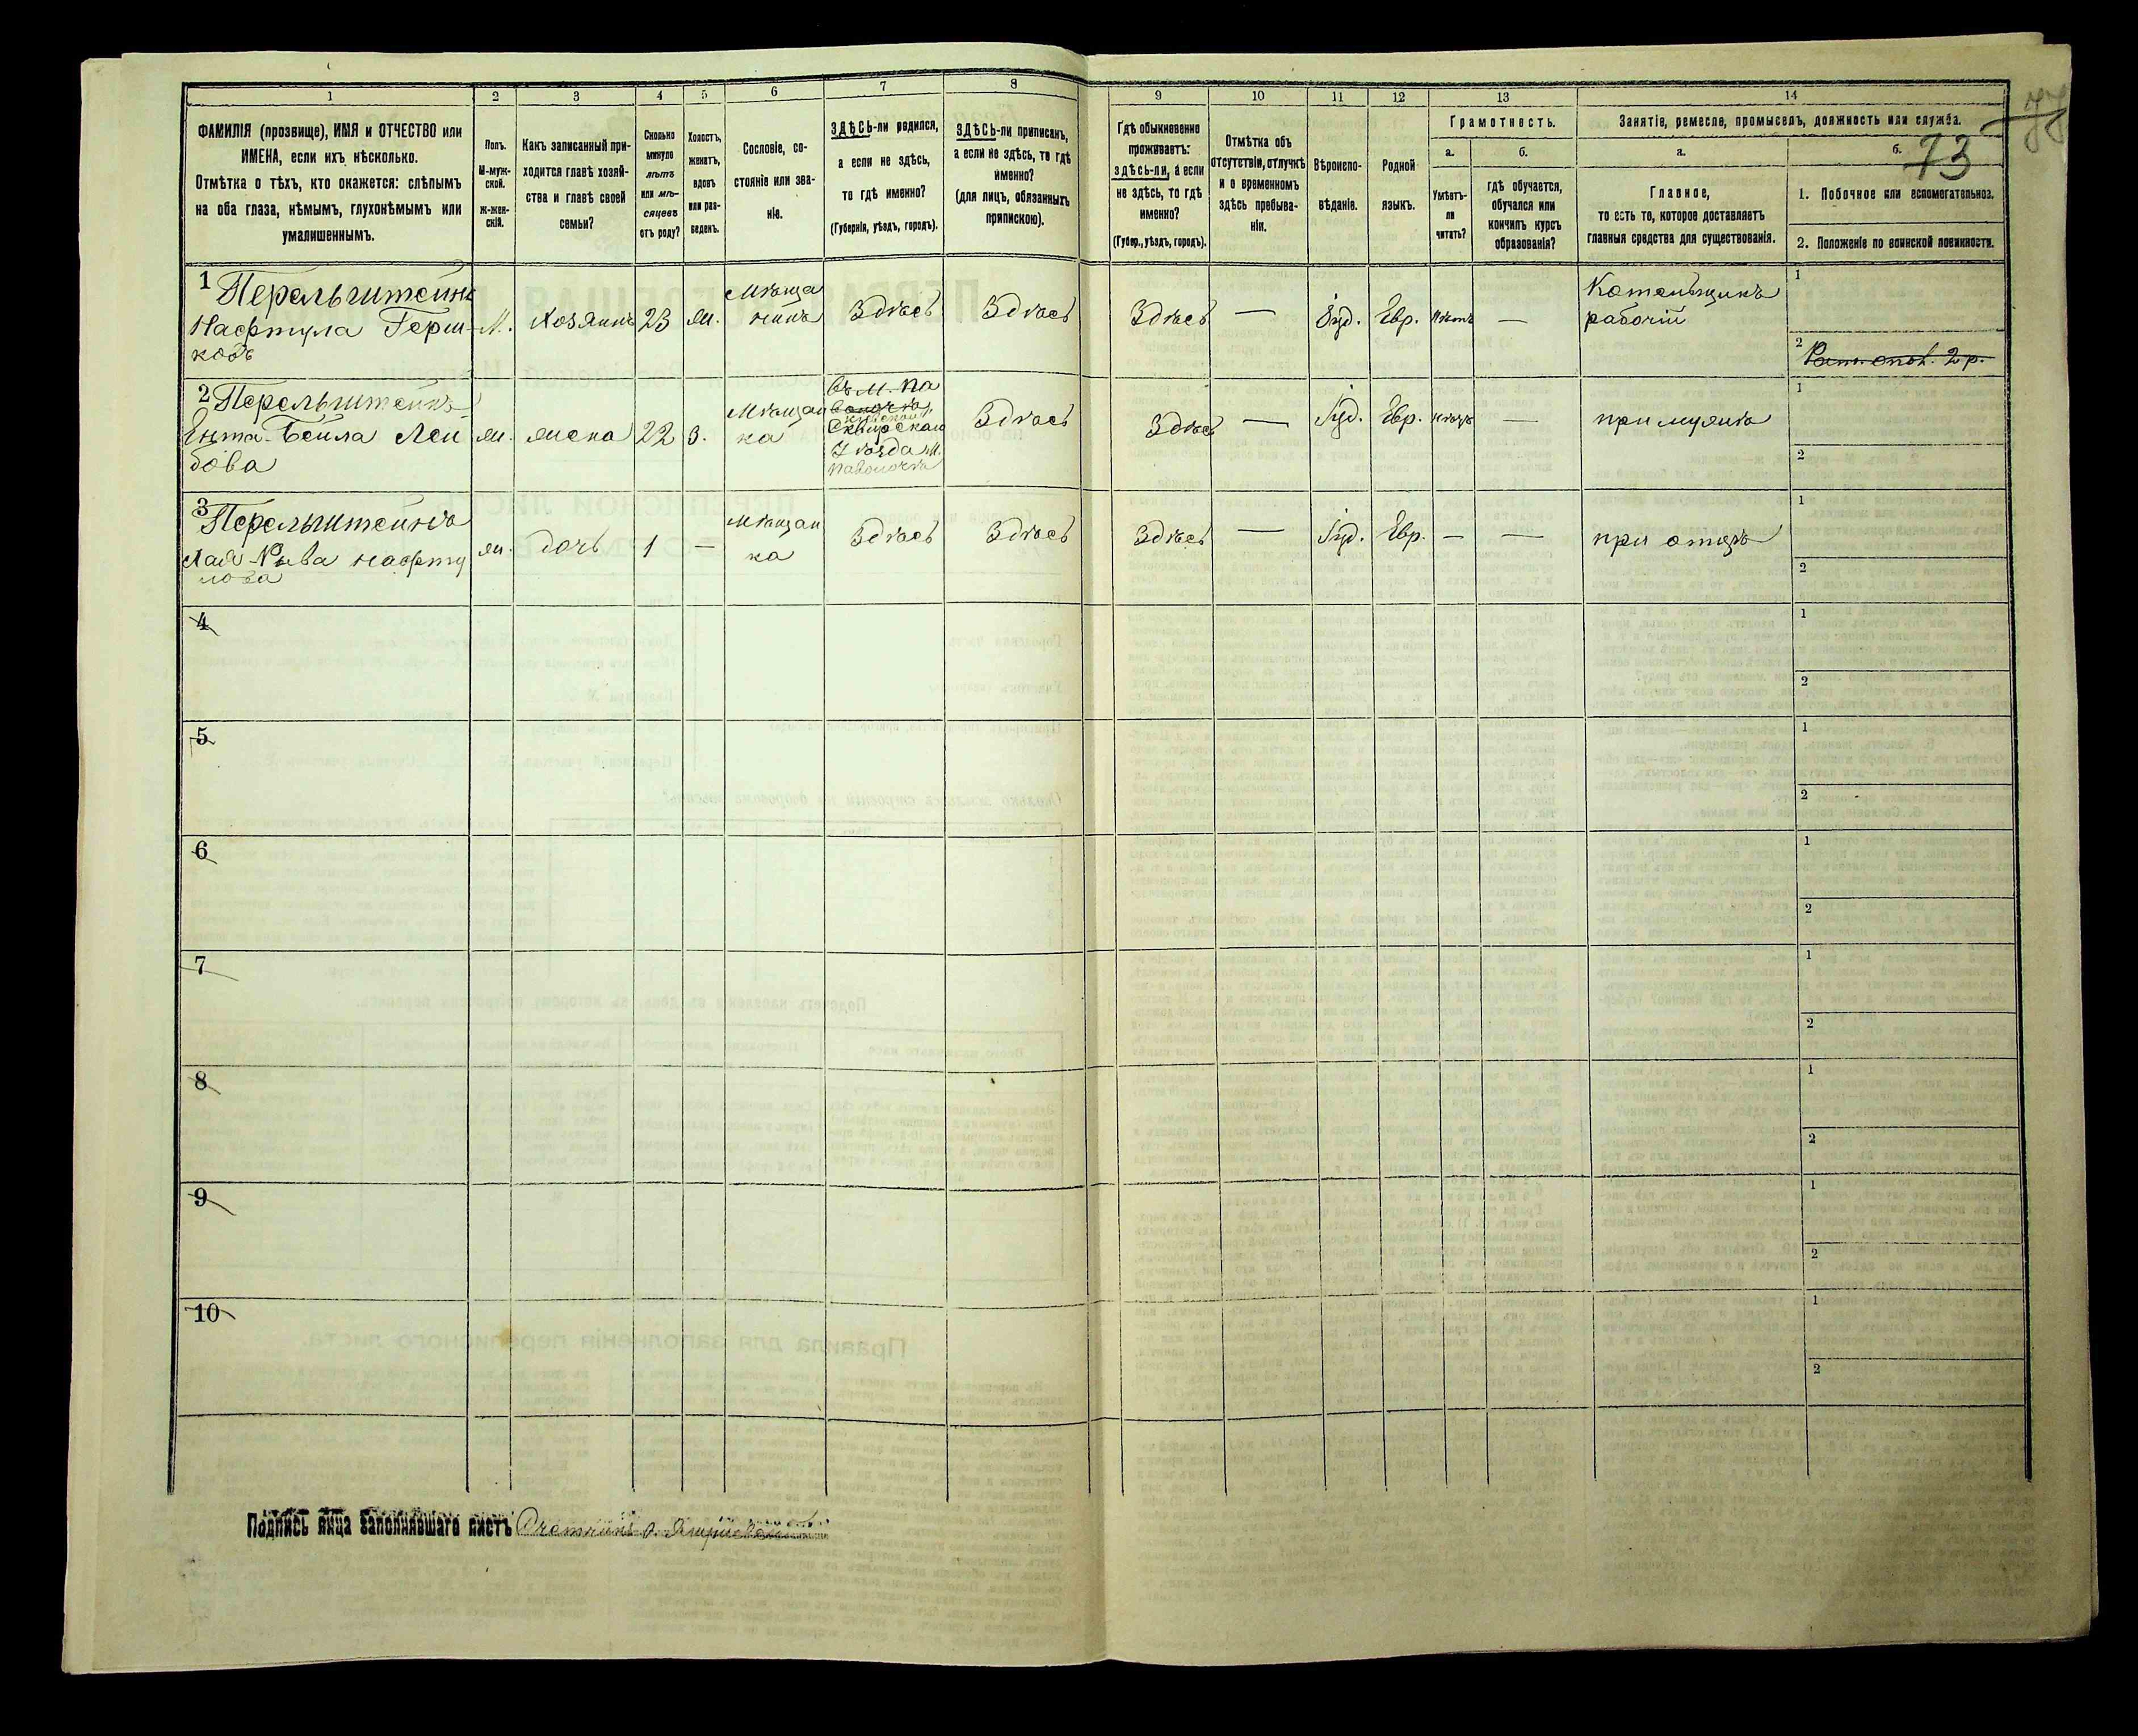 1
2
3
4
5
6
7
8
9
10
11
12
13
14
ФАМИЛІЯ (прозвище), ИМЯ и ОТЧЕСТВО или
ИМЕНА, если ихъ нѣсколько.
Отмѣтка о тѣхъ, кто окажется: слѣпымъ
на оба глаза, нѣмымъ, глухонѣмымъ или
умалишеннымъ.
Полъ.
М-муж-
ской.
ж-жен-
скій.
Какъ записанный при-
ходится главѣ хозяй-
ства и главѣ своей
семьи?
Сколько
минуло
лѣтъ
или мѣ-
сяцевъ
отъ роду?
Холостъ,
женатъ,
вдовъ
или раз-
веденъ.
Сословіе, со-
стояніе или зва-
ніе.
ЗДѢСЬ-ли родился,
а если не здѣсь,
то гдѣ именно?
(Губернія, уѣздъ, городъ).
ЗДѢСЬ-ли приписанъ,
а если не здѣсь, то гдѣ
именно?
(для лицъ, обязанныхъ
припискою).
Гдѣ обыкновенно
проживаетъ:
здѣсь-ли, а если
не здѣсь, то гдѣ
именно?
(Губер., уѣздъ, городъ).
Отмѣтка объ
отсутствіи, отлучкѣ
и о временномъ
здѣсь пребыва-
ніи.
Вѣроиспо-
вѣданіе.
Родной
языкъ.
Грамотность.
а.
б.
Умѣетъ-
ли
читать?
гдѣ обучается,
обучался или
кончилъ курсъ
образованія?
Занятіе, ремесло, промыселъ, должность или служба.
а.
б.
73
Главное,
то есть то, которое доставляетъ
главныя средства для существованія.
1. Побочное или вспомогательное.
2. Положеніе по воинской повинности.
1 Перельштейнъ
Нафтула Герш-
ковъ
М.
хозяинъ
23
ж.
Мѣща
нинъ
Здѣсь
Здѣсь
Здѣсь
—
Іуд.
Евр.
нѣтъ
—
рабочій
1
2
2 Перельштейнъ
Ента-Бейла Леи
бова
ж.
жена
22
З.
Мѣщан
ка
въ м. Па
Сквирскаго
Уѣзда м.
Паволочѣ
Здѣсь
Здѣсь
—
Іуд.
Евр.
нѣтъ
—
при мужѣ
1
2
3 Перельштейнъ
Хая-Рыва Нафту
лова
ж.
дочь
1
—
Мѣщан
ка
Здѣсь
Здѣсь
Здѣсь
—
Іуд.
Евр.
—
—
при отцѣ
1
2
4
1
2
5
1
2
6
1
2
7
1
2
8
1
2
9
1
2
10
1
2
Подпись лица заполнившаго листъ Счетчикъ